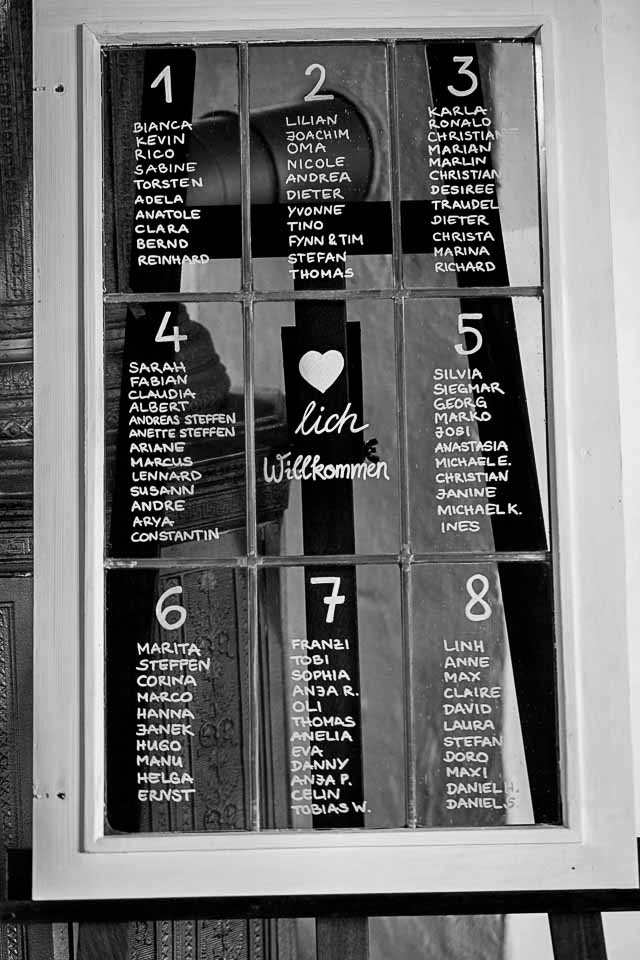 1
BIANCA
KEVIN
RICO
SABINE
TORSTEN
ADELA
ANATOLE
CLARA
BERND
REINHARD
2
LILIAN
JOACHIM
OMA
NICOLE
ANDREA
DIETER
YVONNE
TINO
FYNN & TIM
STEFAN
THOMAS
3
KARLA
RONALD
CHRISTIAN
MARIAN
MARLIN
CHRISTIAN
DESIREE
TRAUDEL
DIETER
CHRISTA
MARINA
RICHARD
4
SARAH
FABIAN
CLAUDIA
ALBERT
ANDREAS STEFFEN
ANETTE STEFFEN
ARIANE
MARCUS
LENNARD
SUSANN
ANDRE
ARYA
CONSTANTIN
lich
Willkommen
5
SILVIA
SIEGMAR
GEORG
MARKO
JOSI
ANASTASIA
MICHAEL E.
CHRISTIAN
JANINE
MICHAEL K.
INES
6
MARITA
STEFFEN
CORINA
MARCO
HANNA
JANEK
HUGO
MANU
HELGA
ERNST
7
FRANZI
TOBI
SOPHIA
ANJA R.
OLI
THOMAS
ANELIA
EVA
DANNY
ANJA P.
CELIN
TOBIAS W.
8
LINH
ANNE
MAX
CLAIRE
DAVID
LAURA
STEFAN
DORO
MAXI
DANIEL H.
DANIEL S.